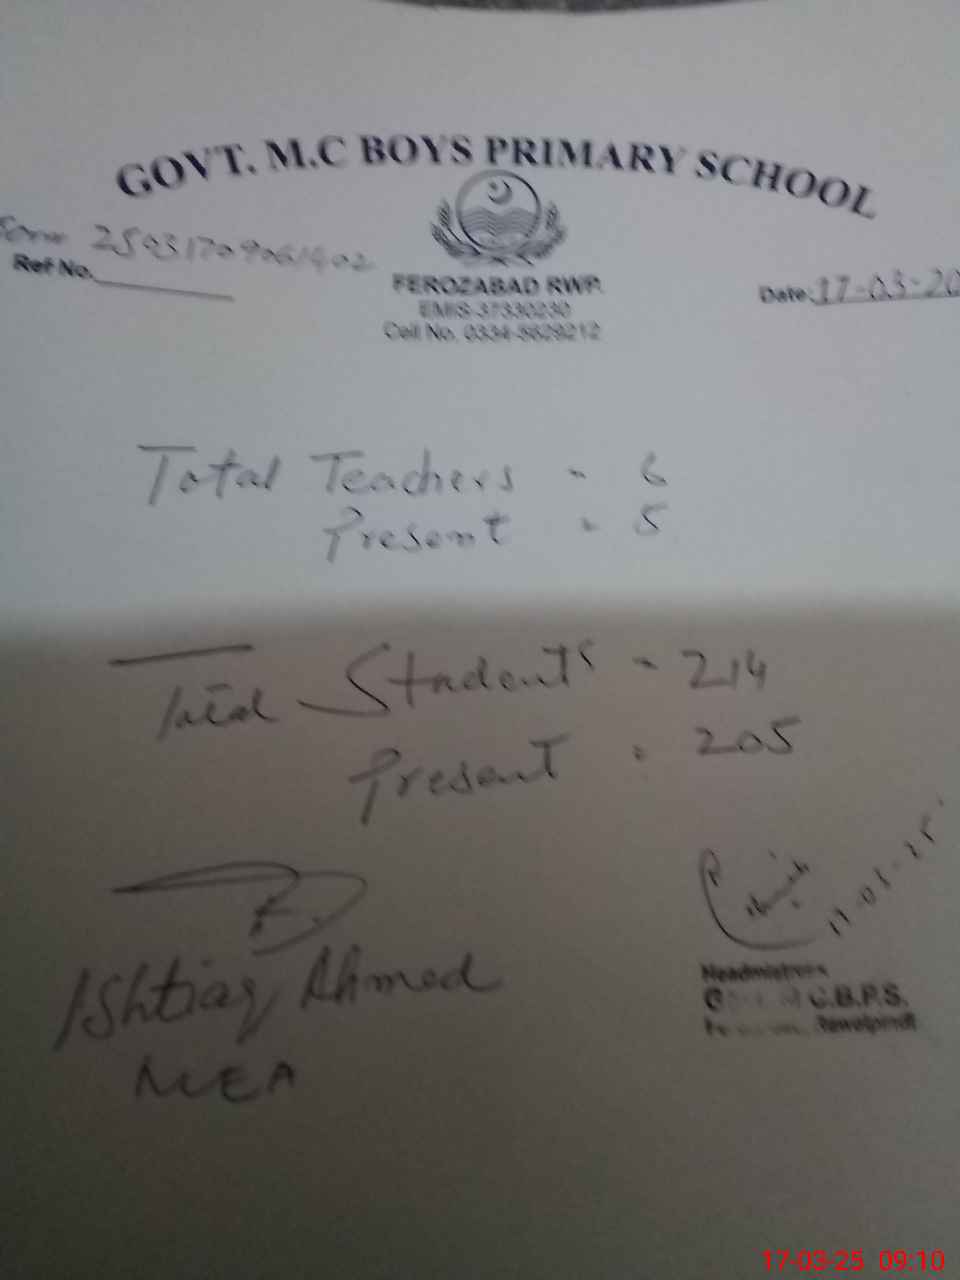 GOVT. M.C BOYS PRIMARY SCHOOL
Form 25031709061402
Ref No.
FEROZABAD RWP.
EMIS-37330230
Cell No. 0334-5629212
Date: 17-03-20
Total Teachers = 6
Present = 5
Total Students = 214
Present = 205
17-03-25
Ishtiaq Ahmed
MEA
Headmistress
G C.B.P.S.
Rawalpindi
17-03-25 09:10